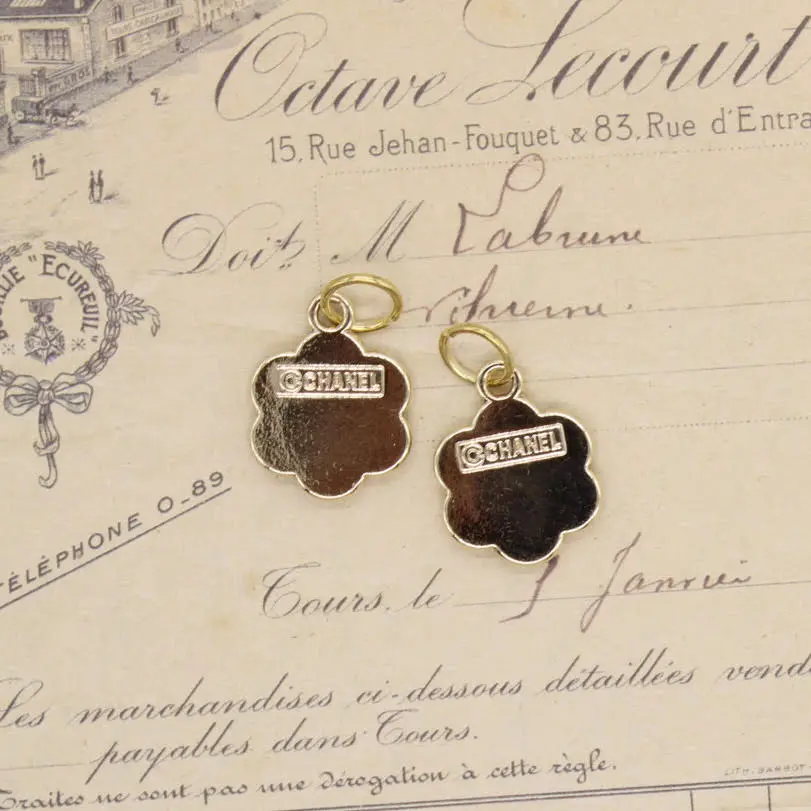 Octave Lecourt
15, Rue Jehan-Fouquet & 83, Rue d'Entra
Doit M Labrune
"ECUREUIL"
©CHANEL
©CHANEL
TÉLÉPHONE 0-89
Tours, le 1 Janvier
Les marchandises ci-dessous détaillées vend
payables dans Tours.
Traites ne sont pas une dérogation à cette règle.
LITH. BARBOT